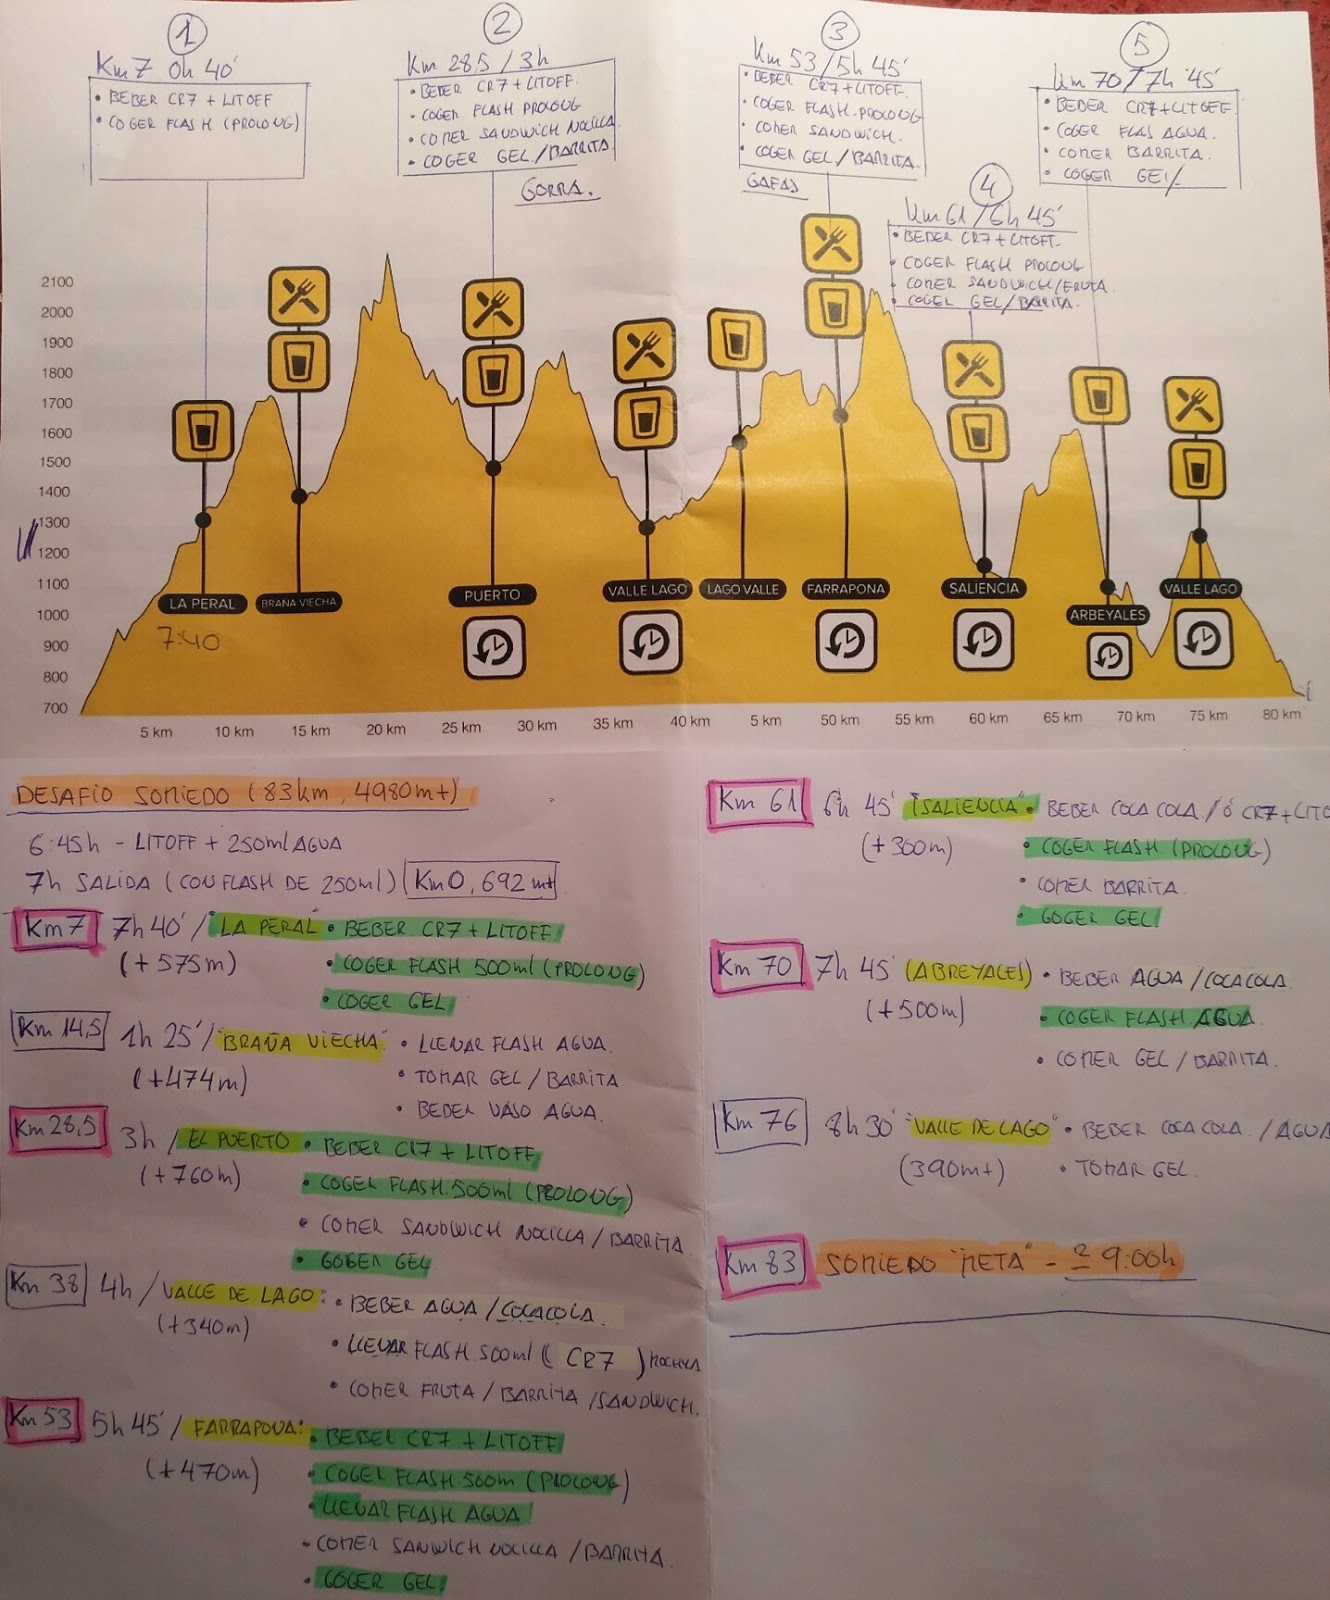 1
Km 7 0h 40'
• BEBER CR7 + LITOFF
• COGER FLASH (PROLONG)
2
Km 28,5 / 3h
• BEBER CR7 + LITOFF.
• COGER FLASH PROLONG
• COMER SANDWICH NOCILLA
• COGER GEL / BARRITA.
GORRA.
3
Km 53 / 5h 45'
• BEBER CR7 + LITOFF.
• COGER FLASH.PROLONG
• COMER SANDWICH.
• COGER GEL / BARRITA.
GAFAS
4
Km 61 / 6h 45'
• BEBER CR7 + LITOFF.
• COGER FLASH PROLONG
• COMER SANDWICH / FRUTA.
• COGER GEL / BARRITA.
5
Km 70 / 7h 45'
• BEBER CR7 + LITOFF.
• COGER FLAS AGUA.
• COMER BARRITA.
• COGER GEL
2100
2000
1900
1800
1700
1600
1500
1400
1300
1200
1100
1000
900
800
700
LA PERAL
BRAÑA VIECHA
PUERTO
VALLE LAGO
LAGO VALLE
FARRAPONA
SALIENCIA
ARBEYALES
VALLE LAGO
7:40
5 km 10 km 15 km 20 km 25 km 30 km 35 km 40 km 5 km 50 km 55 km 60 km 65 km 70 km 75 km 80 km
DESAFIO SOMIEDO (83km, 4980m+)
6:45h - LITOFF + 250ml AGUA
7h SALIDA (CON FLASH DE 250ml) Km 0, 692 mt
Km 7 7h 40' / "LA PERAL" • BEBER CR7 + LITOFF.
(+ 575m) • COGER FLASH 500ml (PROLONG)
• COGER GEL
Km 14,5 1h 25' / "BRAÑA VIECHA" • LLENAR FLASH AGUA.
(+474m) • TOMAR GEL / BARRITA
• BEBER VASO AGUA.
Km 28,5 3h / EL PUERTO • BEBER CR7 + LITOFF
(+760m) • COGER FLASH 500ml (PROLONG)
• COMER SANDWICH NOCILLA / BARRITA.
• COGER GEL
Km 38 4h / VALLE DE LAGO: • BEBER AGUA / COCACOLA.
(+340m) • LLENAR FLASH 500ml ( CR7 ) MOCHILA
• COMER FRUTA / BARRITA / SANDWICH.
Km 53 5h 45' / FARRAPONA: • BEBER CR7 + LITOFF
(+470m) • COGER FLASH 500m (PROLONG)
• LLENAR FLASH AGUA
• COMER SANDWICH NOCILLA / BARRITA.
• COGER GEL
Km 61 6h 45' "SALIENCIA" • BEBER COCA COLA. / Ó CR7 + LITO
(+300m) • COGER FLASH (PROLONG)
• COMER BARRITA.
• COGER GEL
Km 70 7h 45' (ABREYALES) • BEBER AGUA / COCACOLA.
(+500m) • COGER FLASH AGUA.
• COMER GEL / BARRITA.
Km 76 8h 30' "VALLE DE LAGO" • BEBER COCA COLA. / AGUA
(390m+) • TOMAR GEL.
Km 83 SOMIEDO "META" - 9:00h